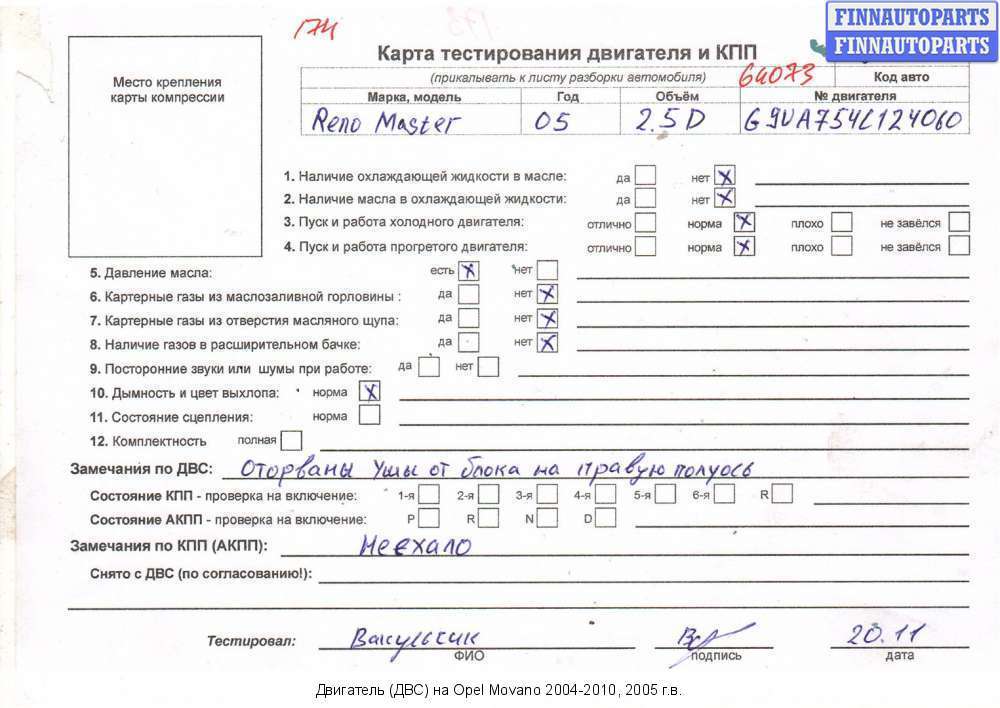 174
FINNAUTOPARTS
FINNAUTOPARTS
Карта тестирования двигателя и КПП
(прикалывать к листу разборки автомобиля) 64073 Код авто
Марка, модель Год Объём № двигателя
Reno Master 05 2.5 D G9UA754C124060
Место крепления
карты компрессии
1. Наличие охлаждающей жидкости в масле: да нет X
2. Наличие масла в охлаждающей жидкости: да нет X
3. Пуск и работа холодного двигателя: отлично норма X плохо не завёлся
4. Пуск и работа прогретого двигателя: отлично норма X плохо не завёлся
5. Давление масла: есть X нет
6. Картерные газы из маслозаливной горловины : да нет X
7. Картерные газы из отверстия масляного щупа: да нет X
8. Наличие газов в расширительном бачке: да нет X
9. Посторонние звуки или шумы при работе: да нет
10. Дымность и цвет выхлопа: норма X
11. Состояние сцепления: норма
12. Комплектность полная
Замечания по ДВС: Оторваны Ушы от блока на правую полуось
Состояние КПП - проверка на включение: 1-я 2-я 3-я 4-я 5-я 6-я R
Состояние АКПП - проверка на включение: P R N D
Замечания по КПП (АКПП): Не ехало
Снято с ДВС (по согласованию!):
Тестировал: Вакульчик 20.11
ФИО подпись дата
Двигатель (ДВС) на Opel Movano 2004-2010, 2005 г.в.